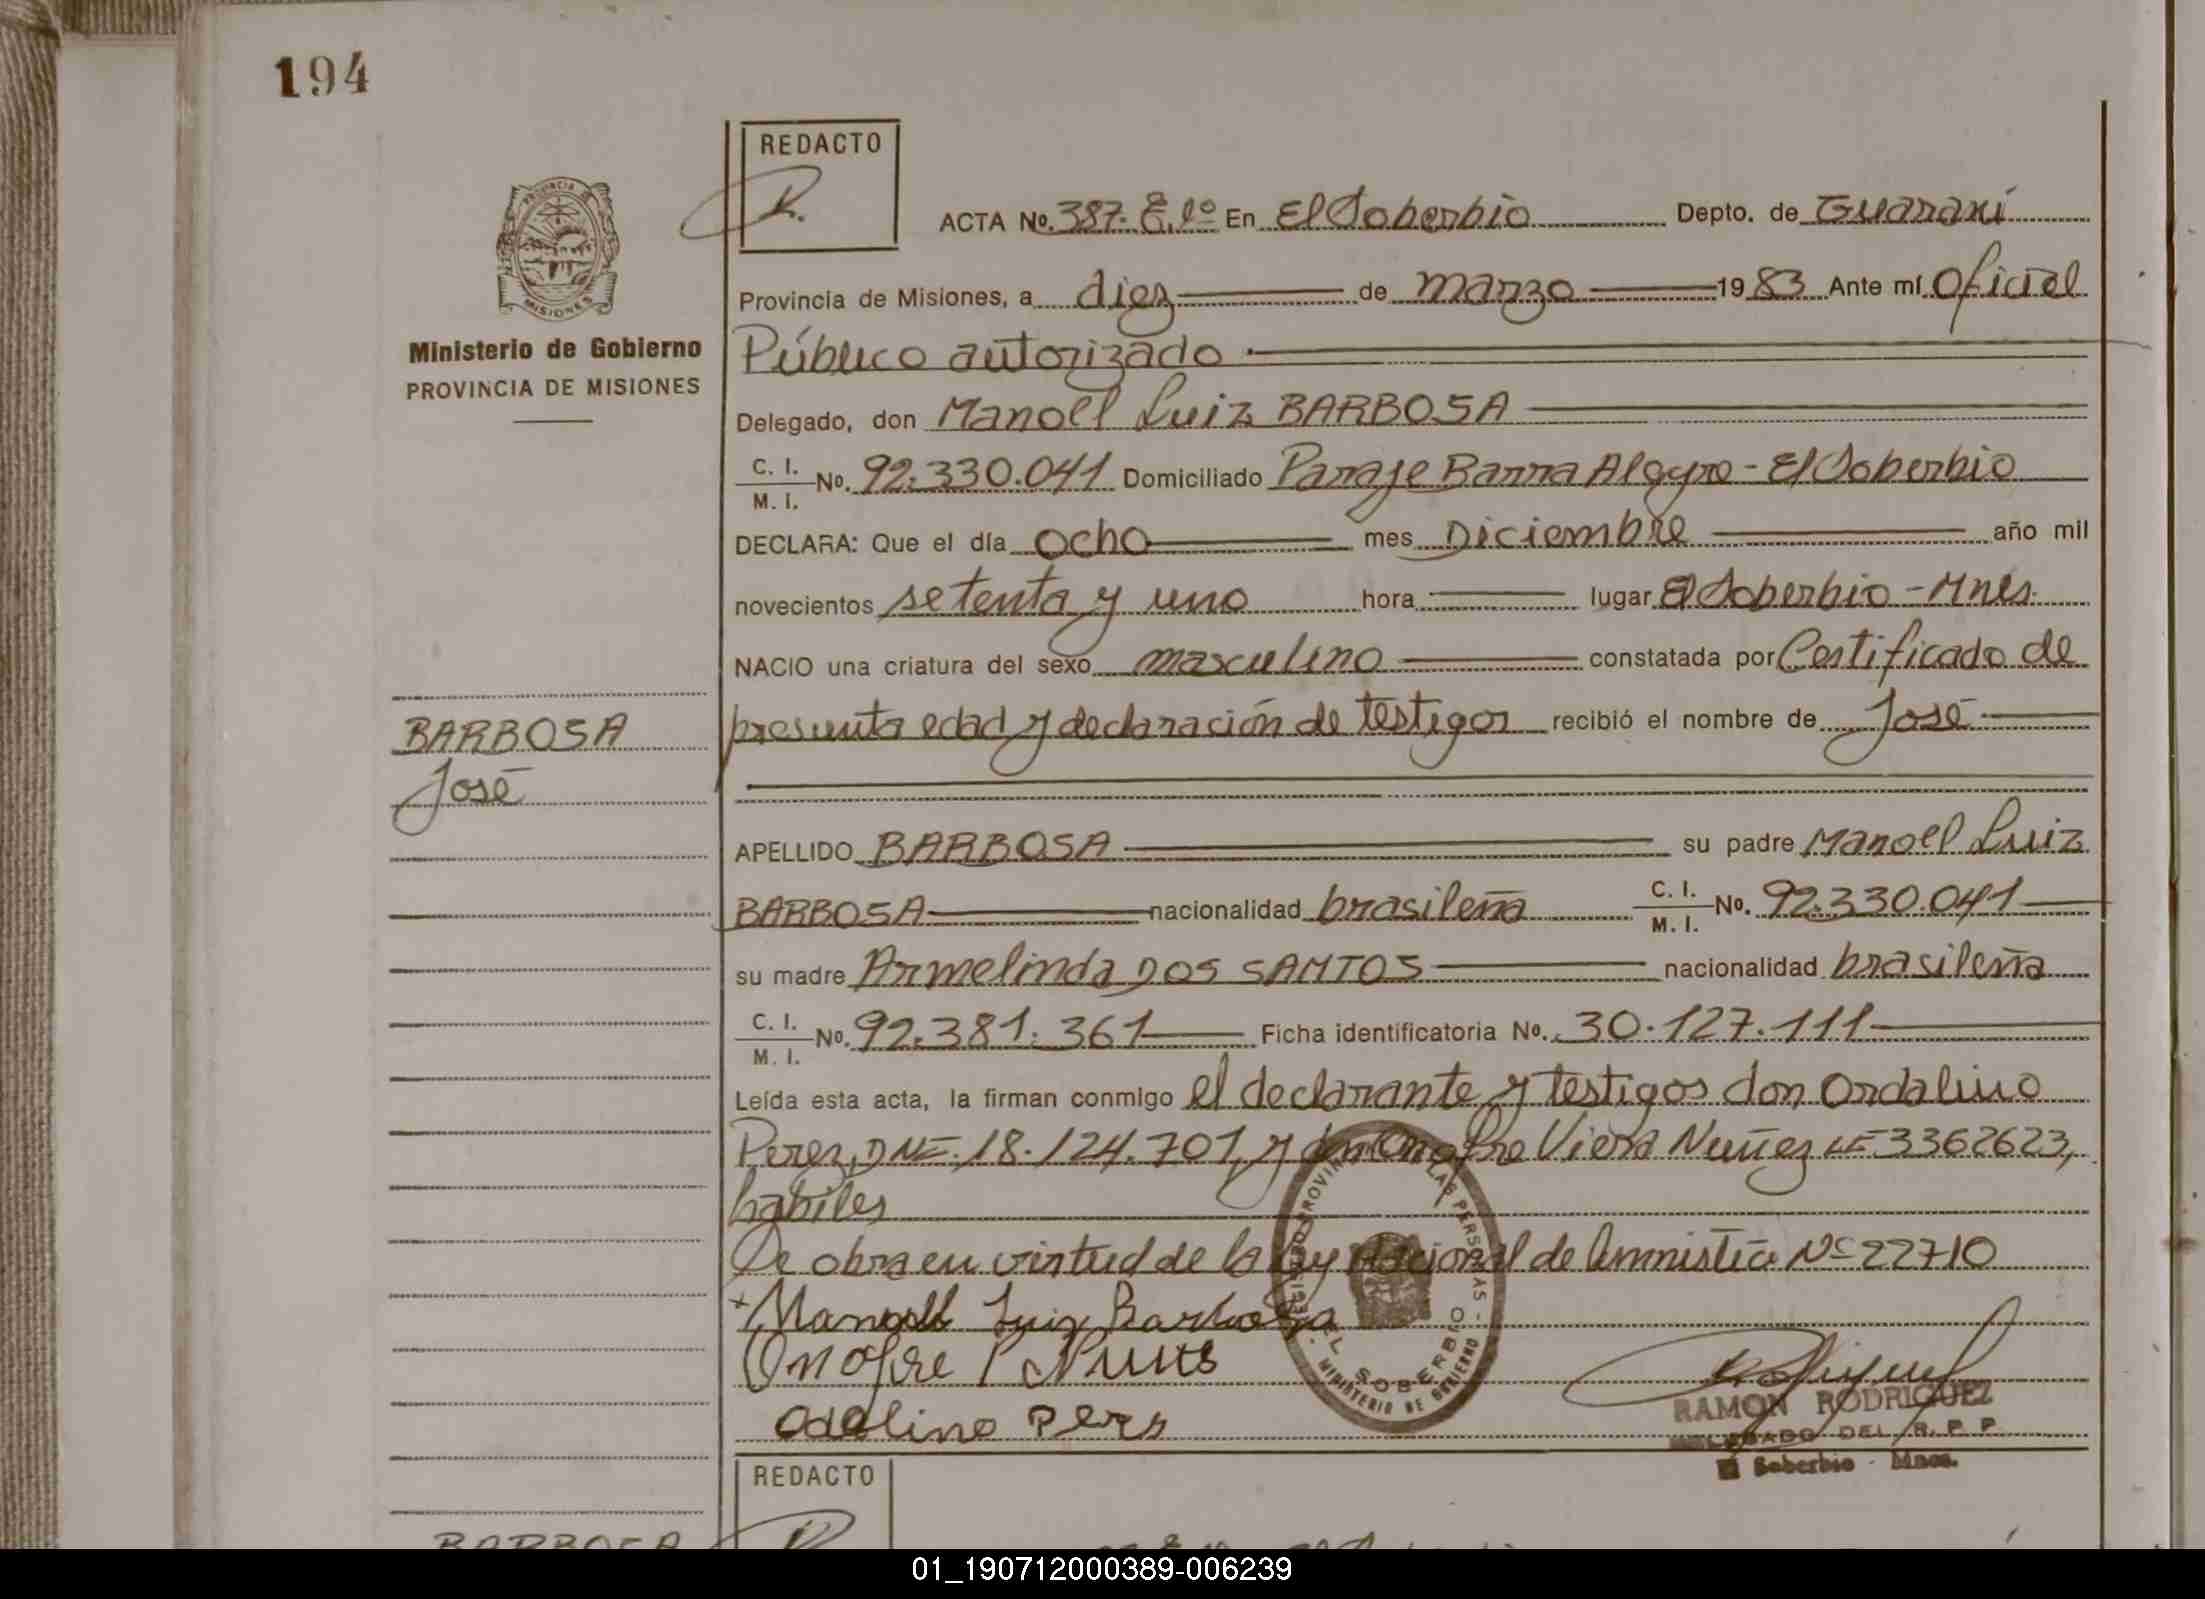 194
REDACTO
R.
ACTA No. 387. E.1º En El Soberbio Depto. de Guaraní
PROVINCIA DE
MISIONES
Provincia de Misiones, a diez de marzo 1983 Ante mí Oficial
Ministerio de Gobierno
PROVINCIA DE MISIONES
Público autorizado
Delegado, don Manoel Luiz BARBOSA
C. I.
M. I. No. 92.330.041 Domiciliado Paraje Barra Alegre - El Soberbio
DECLARA: Que el día ocho mes Diciembre año mil
novecientos setenta y uno hora lugar El Soberbio - Mnes.
NACIO una criatura del sexo masculino constatada por Certificado de
presunta edad y declaración de testigos recibió el nombre de José
BARBOSA
José
APELLIDO BARBOSA su padre Manoel Luiz
BARBOSA nacionalidad brasileña C. I. M. I. No. 92.330.041
su madre Armelinda DOS SANTOS nacionalidad brasileña
C. I.
M. I. No. 92.381.361 Ficha identificatoria No. 30.127.111
Leída esta acta, la firman conmigo el declarante y testigos don Ordalino
Perez, DNI. 18.124.701, y don Onofre Viera Nuñez LE 3362623,
habiles
Se obra en virtud de la Ley Nacional de Amnistía Nº 22710
Manoell Luiz Barbosa
Onofre V Nunes
Odolino Pers
REGISTRO PROVINCIAL DE LAS PERSONAS - EL SOBERBIO
MINISTERIO DE GOBIERNO
RAMON RODRIGUEZ
DELEGADO DEL R. P. P.
El Soberbio - Mnes.
REDACTO
BARBOSA
01_190712000389-006239